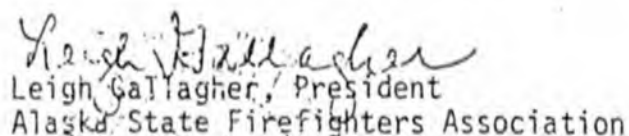 Leigh Gallagher
Leigh Gallagher, President
Alaska State Firefighters Association